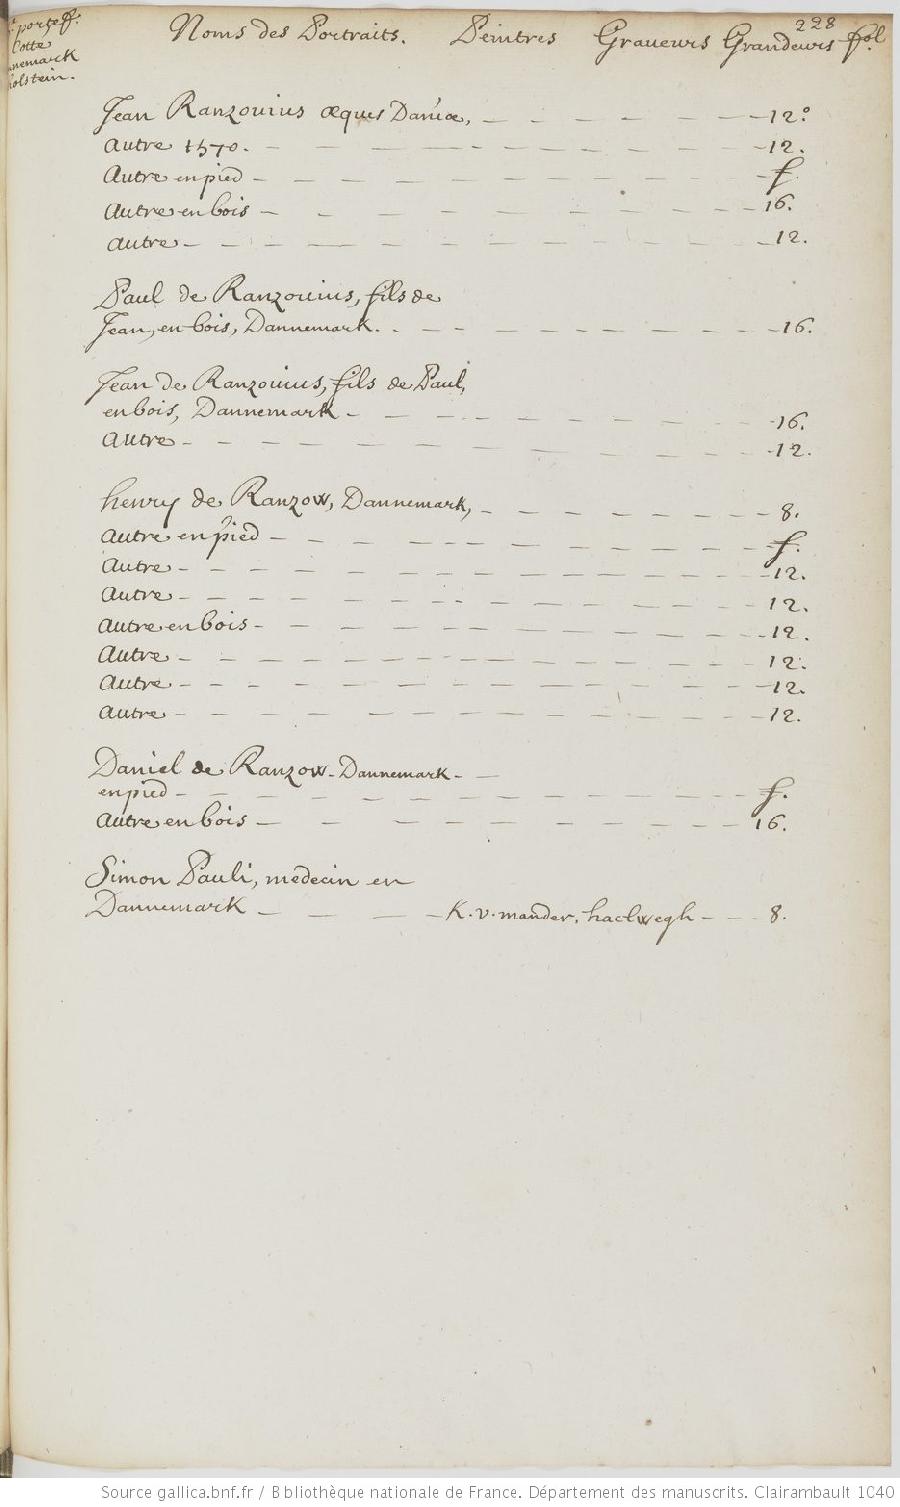 228
portef.
Cotte
Noms des Portraits. Peintres Graveurs Grandeurs fol.
Jean Ranzovius æques Daniæ, 12.°
Autre 1570. 12.
Autre en pied f
Autre en bois 16.
Autre 12.
Paul de Ranzovius, fils de
Jean, en bois, Dannemark. 16.
Jean de Ranzovius, fils de Paul,
en bois, Dannemark 16.
Autre 12.
henry de Ranzow, Dannemark, 8.
Autre en pied f.
Autre 12.
Autre 12.
Autre en bois 12.
Autre 12.
Autre 12.
Autre 12.
Daniel de Ranzow - Dannemark
en pied f.
Autre en bois 16.
Simon Pauli, medecin en
Dannemark K. v. mander. haelwegh 8.
Source gallica.bnf.fr / Bibliothèque nationale de France. Département des manuscrits. Clairambault 1040